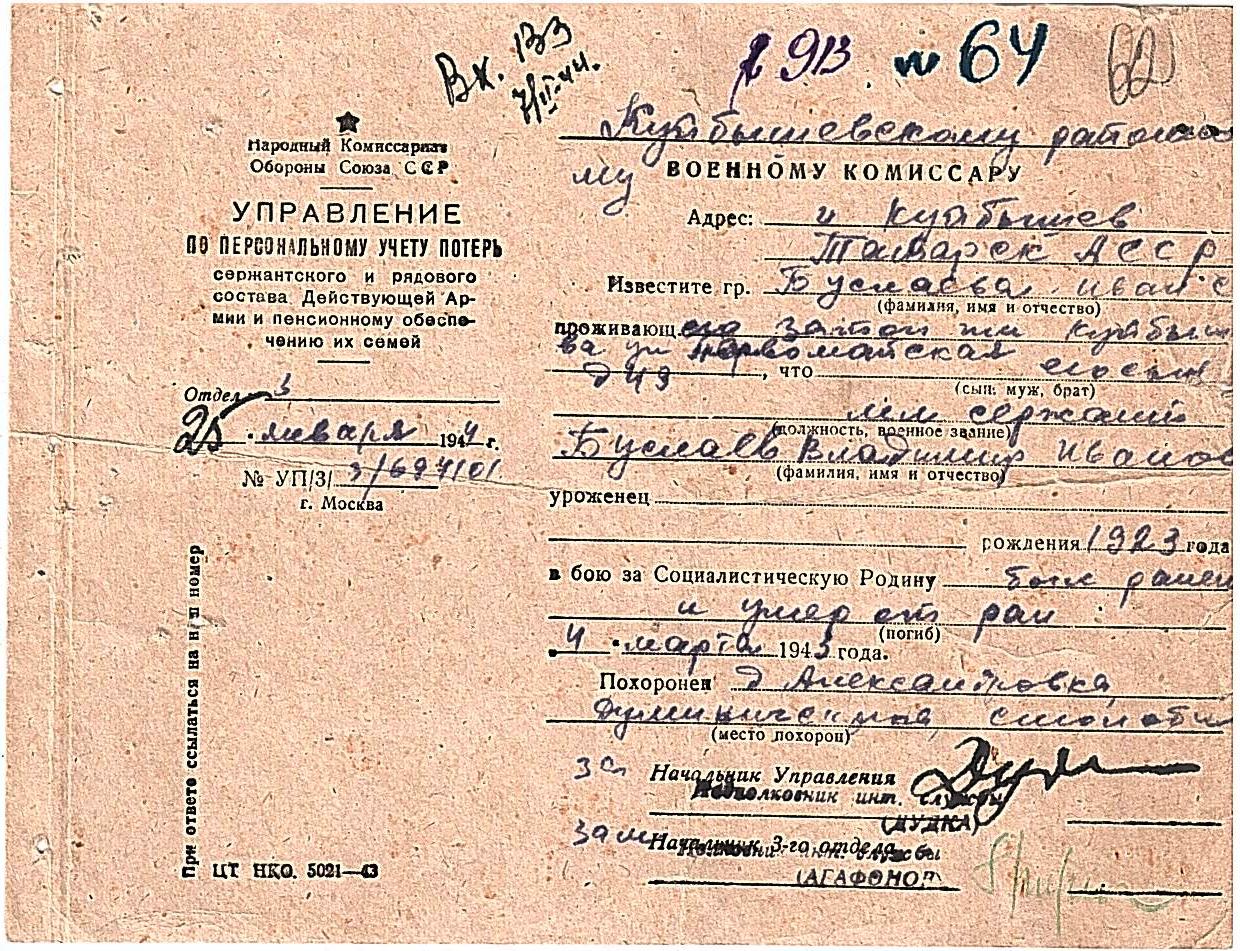 Вк. 133
7/II-44.
913 № 64
62
Народный Комиссариат
Обороны Союза ССР
УПРАВЛЕНИЕ
ПО ПЕРСОНАЛЬНОМУ УЧЕТУ ПОТЕРЬ
сержантского и рядового
состава Действующей Ар-
мии и пенсионному обеспе-
чению их семей
Отдел 3
25 января 1944 г.
№ УП/3/
г. Москва
При ответе ссылаться на наш номер
ЦТ НКО. 5021—43
Куйбышевскому районно
му ВОЕННОМУ КОМИССАРУ
Адрес: г Куйбышев
Татарск АССР
Известите гр. Буслаева Иван
(фамилия, имя и отчество)
проживающего Затон им Куйбыш
ва ул Первомайская
д 49, что его сын
(сын, муж, брат)
мл сержант
(должность, военное звание)
Буслаев Владимир Иванов
(фамилия, имя и отчество)
уроженец
рождения 1923 года
в бою за Социалистическую Родину был ранен
и умер от ран
(погиб)
4 марта 1943 года.
Похоронен д Александровка
Думиническ смол обл
(место похорон)
за Начальник Управления
Подполковник инт. службы
(ДУДКА)
зам Начальник 3-го отдела
инт. службы
(АГАФОНОВ)